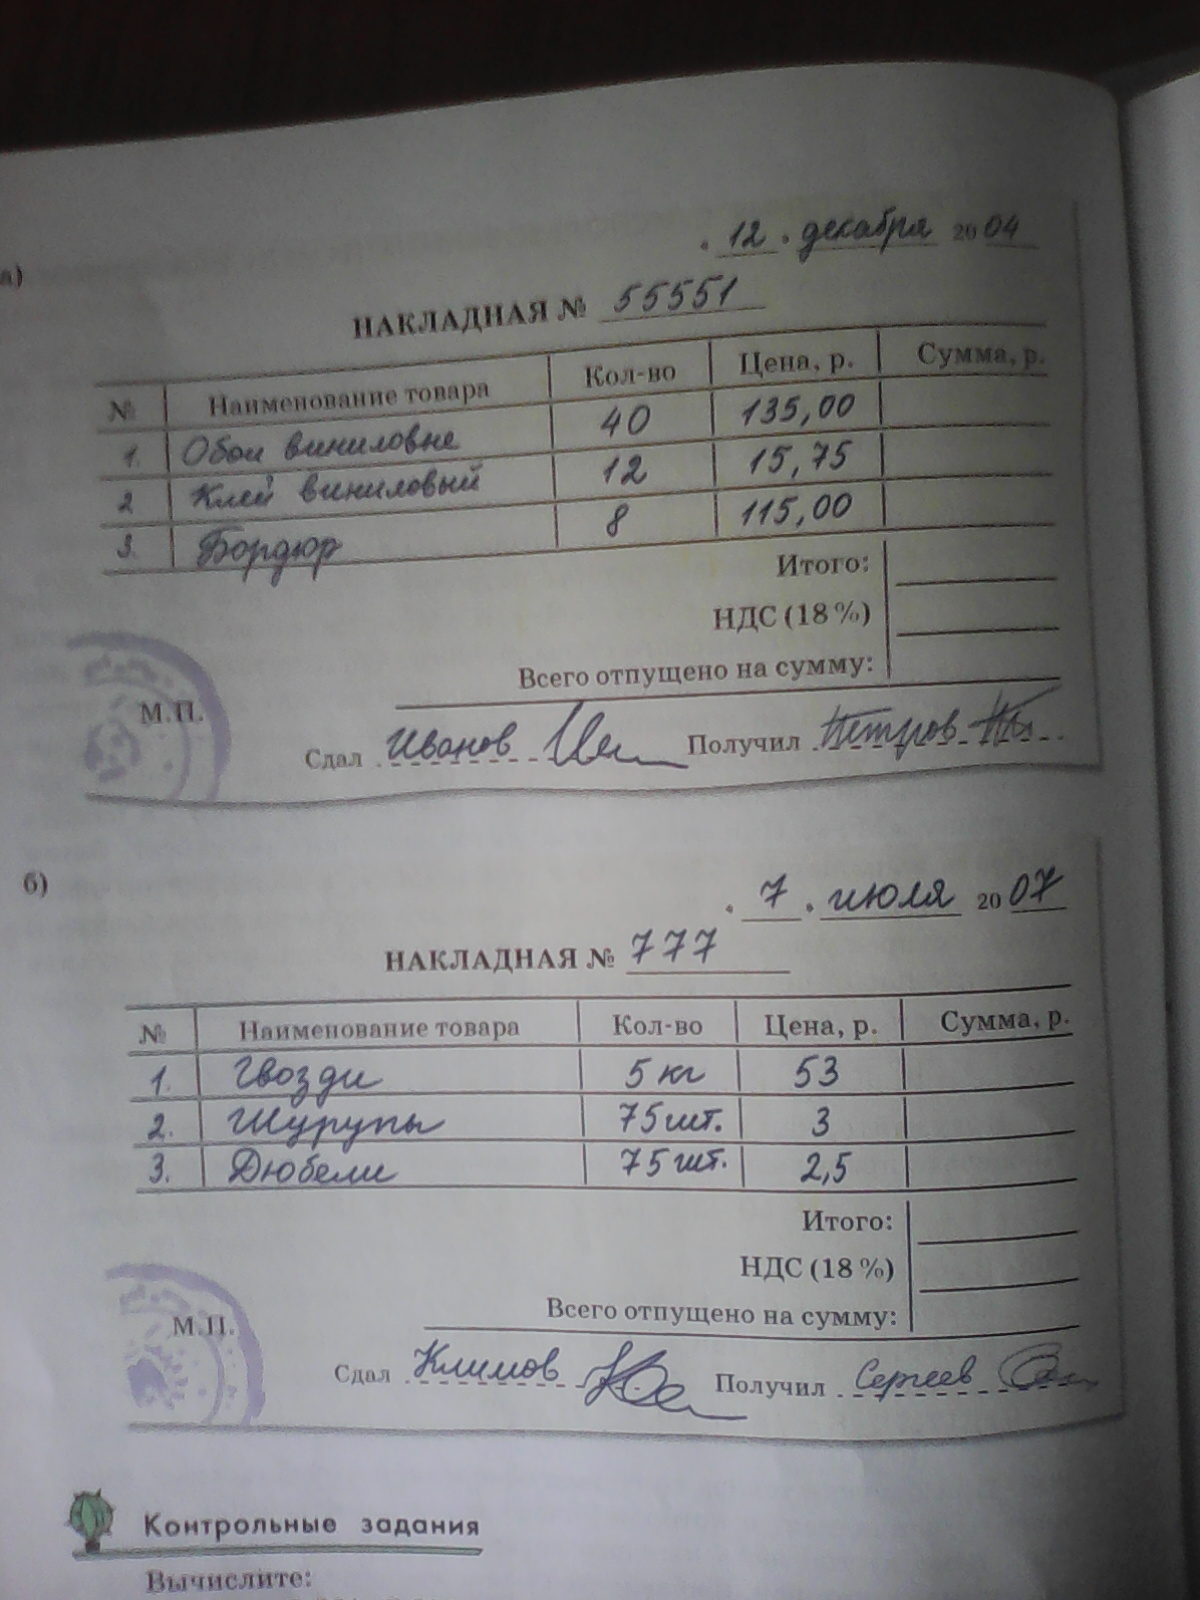 а)
„12“ декабря 2004
НАКЛАДНАЯ № 55551
№ Наименование товара Кол-во Цена, р. Сумма, р.
1. Обои виниловые 40 135,00
2 Клей виниловый 12 15,75
3. Бордюр 8 115,00
Итого:
НДС (18%)
Всего отпущено на сумму:
М.П.
Сдал Иванов Получил Петров
б)
„7“ июля 2007
НАКЛАДНАЯ № 777
№ Наименование товара Кол-во Цена, р. Сумма, р.
1. Гвозди 5 кг 53
2. Шурупы 75 шт. 3
3. Дюбели 75 шт. 2,5
Итого:
НДС (18%)
Всего отпущено на сумму:
М.П.
Сдал Климов Получил Сергеев
Контрольные задания
Вычислите: